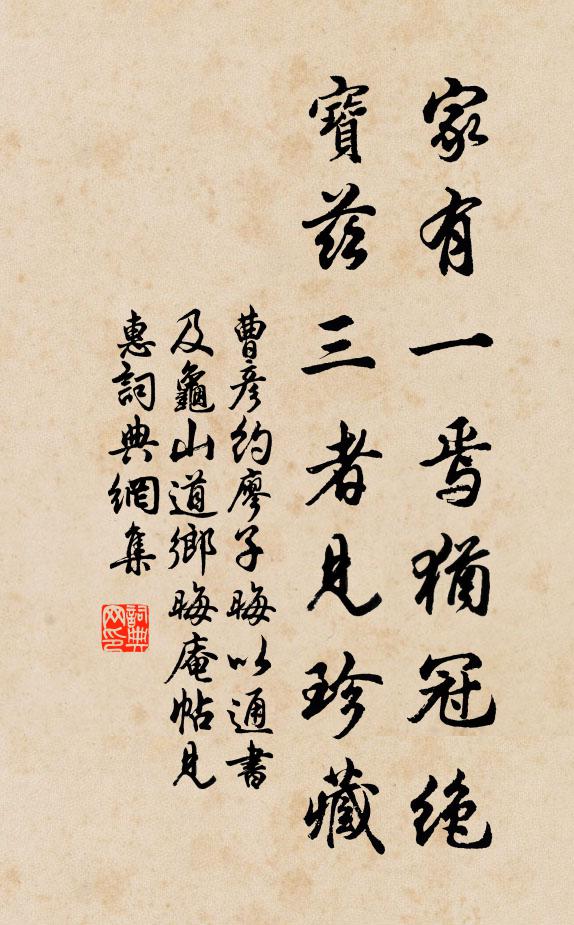 家有一焉猶冠絶
寶茲三者見珍藏
曹彦約廖子晦以通書
及龜山道鄉晦庵帖見
惠詞典網集
詞典網印